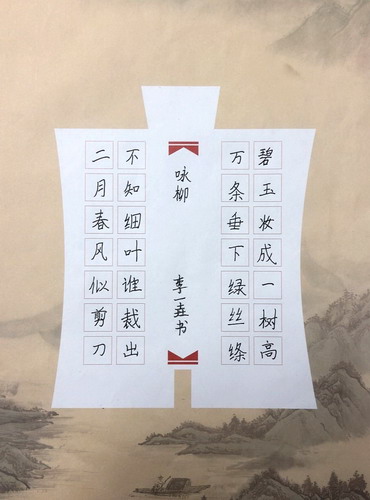 碧玉妆成一树高
万条垂下绿丝绦
咏柳
李一垚书
不知细叶谁裁出
二月春风似剪刀